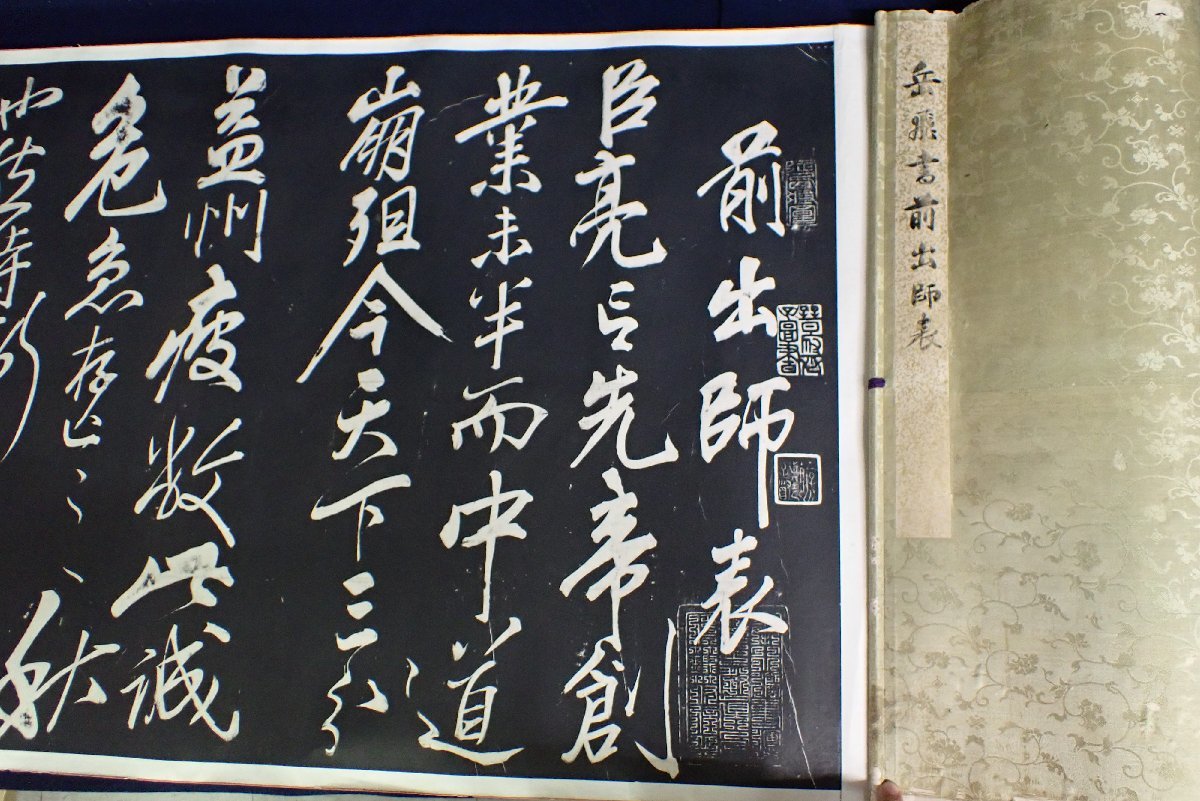 岳飛書前出師表
前出師表
臣亮言先帝創
業未半而中道
崩殂今天下三分
益州疲敝此誠
危急存亡之秋
也然侍衛